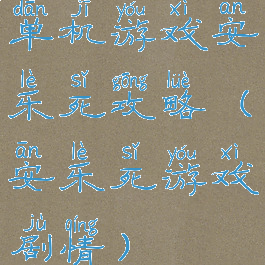 dān jī yóu xì ān
单机游戏安
lè sǐ gōng lüè
乐死攻略（
ān lè sǐ yóu xì
安乐死游戏
jù qíng
剧情）